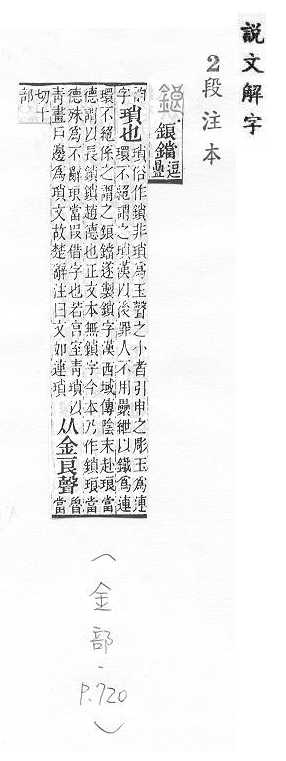 說文解字
2段注本
鋃
鋃鐺逗疊
瑣也瑣俗作鎖非瑣爲玉聲之小者引申之彫玉爲連
字環不絕謂之瑣漢以後罪人不用纍紲以鐵爲連
環不絕係之謂之鋃鐺遂製鎖字漢西域傳陰末赴琅當
德謂以長鎖鎖趙德也正文本無鎖字今本乃作鎖琅當
德殊爲不辭琅當叚借字也若宮室青瑣以
青畫戶邊爲瑣文故楚辭注曰文如連瑣
从金良聲魯當
切十
部
(金部·P.720)